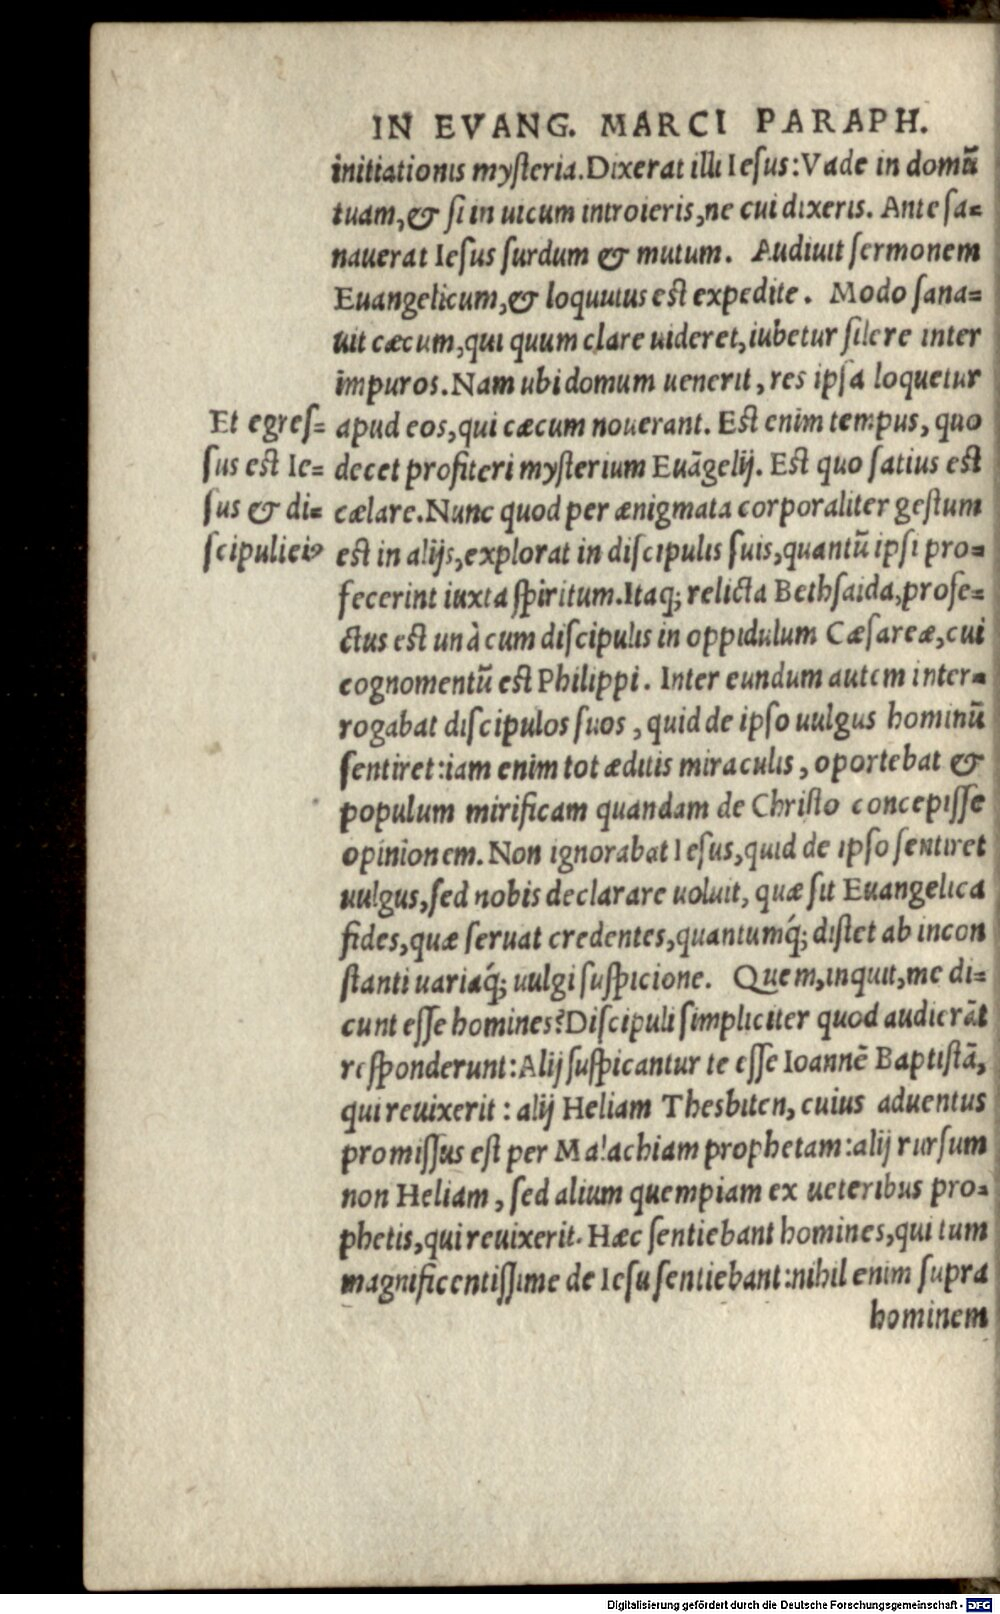 IN EVANG. MARCI PARAPH.
initiationis mysteria. Dixerat illi Iesus: Vade in domũ
tuam, & si in uicum introieris, ne cui dixeris. Ante sa=
nauerat Iesus surdum & mutum. Audiuit sermonem
Euangelicum, & loquutus est expedite. Modo sana=
uit cæcum, qui quum clare uideret, iubetur silere inter
impuros. Nam ubi domum uenerit, res ipsa loquetur
Et egres=
sus est Ie=
sus & di=
scipuli eiꝰ
apud eos, qui cæcum nouerant. Est enim tempus, quo
decet profiteri mysterium Euãgelij. Est quo satius est
cælare. Nunc quod per ænigmata corporaliter gestum
est in alijs, explorat in discipulis suis, quantũ ipsi pro=
fecerint iuxta spiritum. Itaq; relicta Bethsaida, profe=
ctus est unà cum discipulis in oppidulum Cæsareæ, cui
cognomentũ est Philippi. Inter eundum autem inter=
rogabat discipulos suos, quid de ipso uulgus hominũ
sentiret: iam enim tot æditis miraculis, oportebat &
populum mirificam quandam de Christo concepisse
opinionem. Non ignorabat Iesus, quid de ipso sentiret
uulgus, sed nobis declarare uoluit, quæ sit Euangelica
fides, quæ seruat credentes, quantumq́; distet ab incon
stanti uariaq́; uulgi suspicione. Quem, inquit, me di=
cunt esse homines? Discipuli simpliciter quod audierãt
responderunt: Alij suspicantur te esse Ioannẽ Baptistã,
qui reuixerit: alij Heliam Thesbiten, cuius aduentus
promissus est per Malachiam prophetam: alij rursum
non Heliam, sed alium quempiam ex ueteribus pro=
phetis, qui reuixerit. Hæc sentiebant homines, qui tum
magnificentissime de Iesu sentiebant: nihil enim supra
hominem
Digitalisierung gefördert durch die Deutsche Forschungsgemeinschaft - DFG